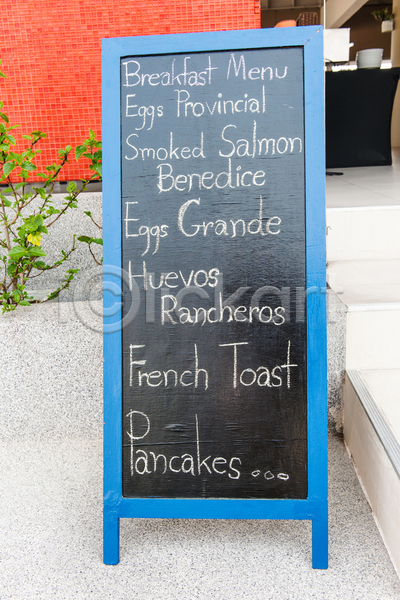 Breakfast Menu
Eggs Provincial
Smoked Salmon
Benedice
Eggs Grande
Huevos
Rancheros
French Toast
Pancakes...